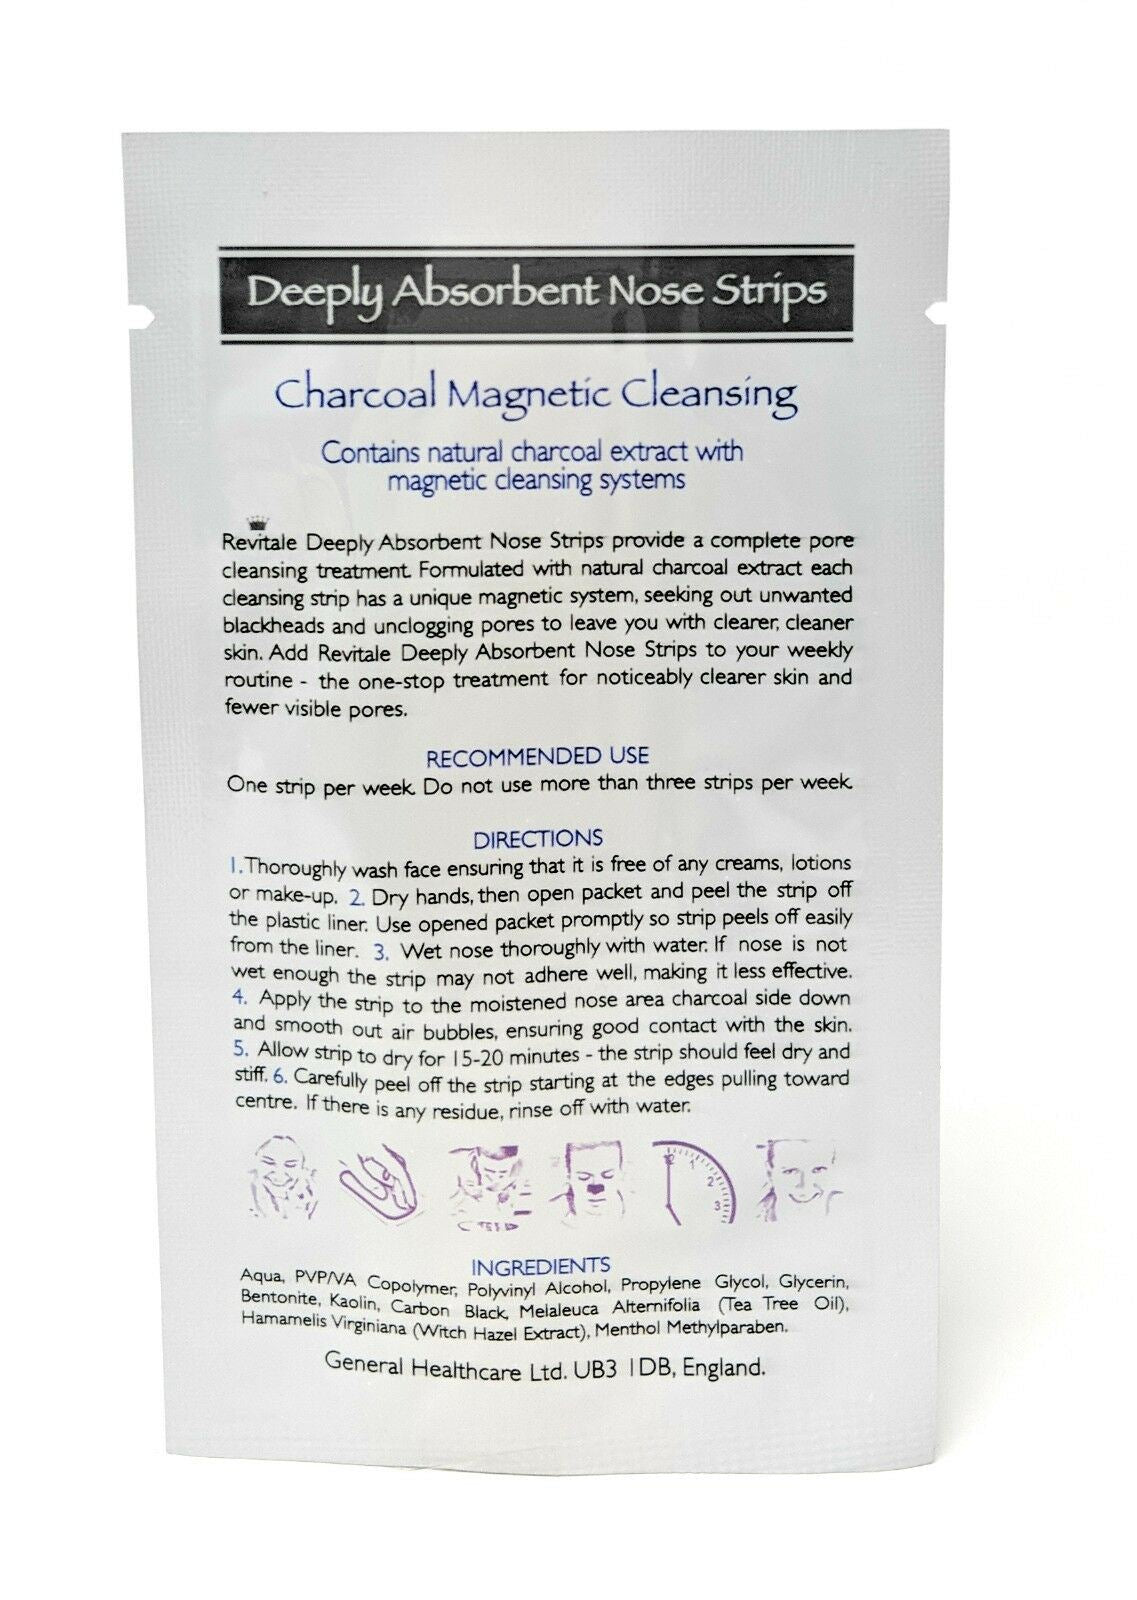 Deeply Absorbent Nose Strips
Charcoal Magnetic Cleansing
Contains natural charcoal extract with
magnetic cleansing systems
Revitale Deeply Absorbent Nose Strips provide a complete pore
cleansing treatment. Formulated with natural charcoal extract each
cleansing strip has a unique magnetic system, seeking out unwanted
blackheads and unclogging pores to leave you with clearer, cleaner
skin. Add Revitale Deeply Absorbent Nose Strips to your weekly
routine - the one-stop treatment for noticeably clearer skin and
fewer visible pores.
RECOMMENDED USE
One strip per week. Do not use more than three strips per week.
DIRECTIONS
1. Thoroughly wash face ensuring that it is free of any creams, lotions
or make-up. 2. Dry hands, then open packet and peel the strip off
the plastic liner. Use opened packet promptly so strip peels off easily
from the liner. 3. Wet nose thoroughly with water. If nose is not
wet enough the strip may not adhere well, making it less effective.
4. Apply the strip to the moistened nose area charcoal side down
and smooth out air bubbles, ensuring good contact with the skin.
5. Allow strip to dry for 15-20 minutes - the strip should feel dry and
stiff. 6. Carefully peel off the strip starting at the edges pulling toward
centre. If there is any residue, rinse off with water.
1 2 3
INGREDIENTS
Aqua, PVP/VA Copolymer, Polyvinyl Alcohol, Propylene Glycol, Glycerin,
Bentonite, Kaolin, Carbon Black, Melaleuca Alternifolia (Tea Tree Oil),
Hamamelis Virginiana (Witch Hazel Extract), Menthol Methylparaben.
General Healthcare Ltd. UB3 1DB, England.